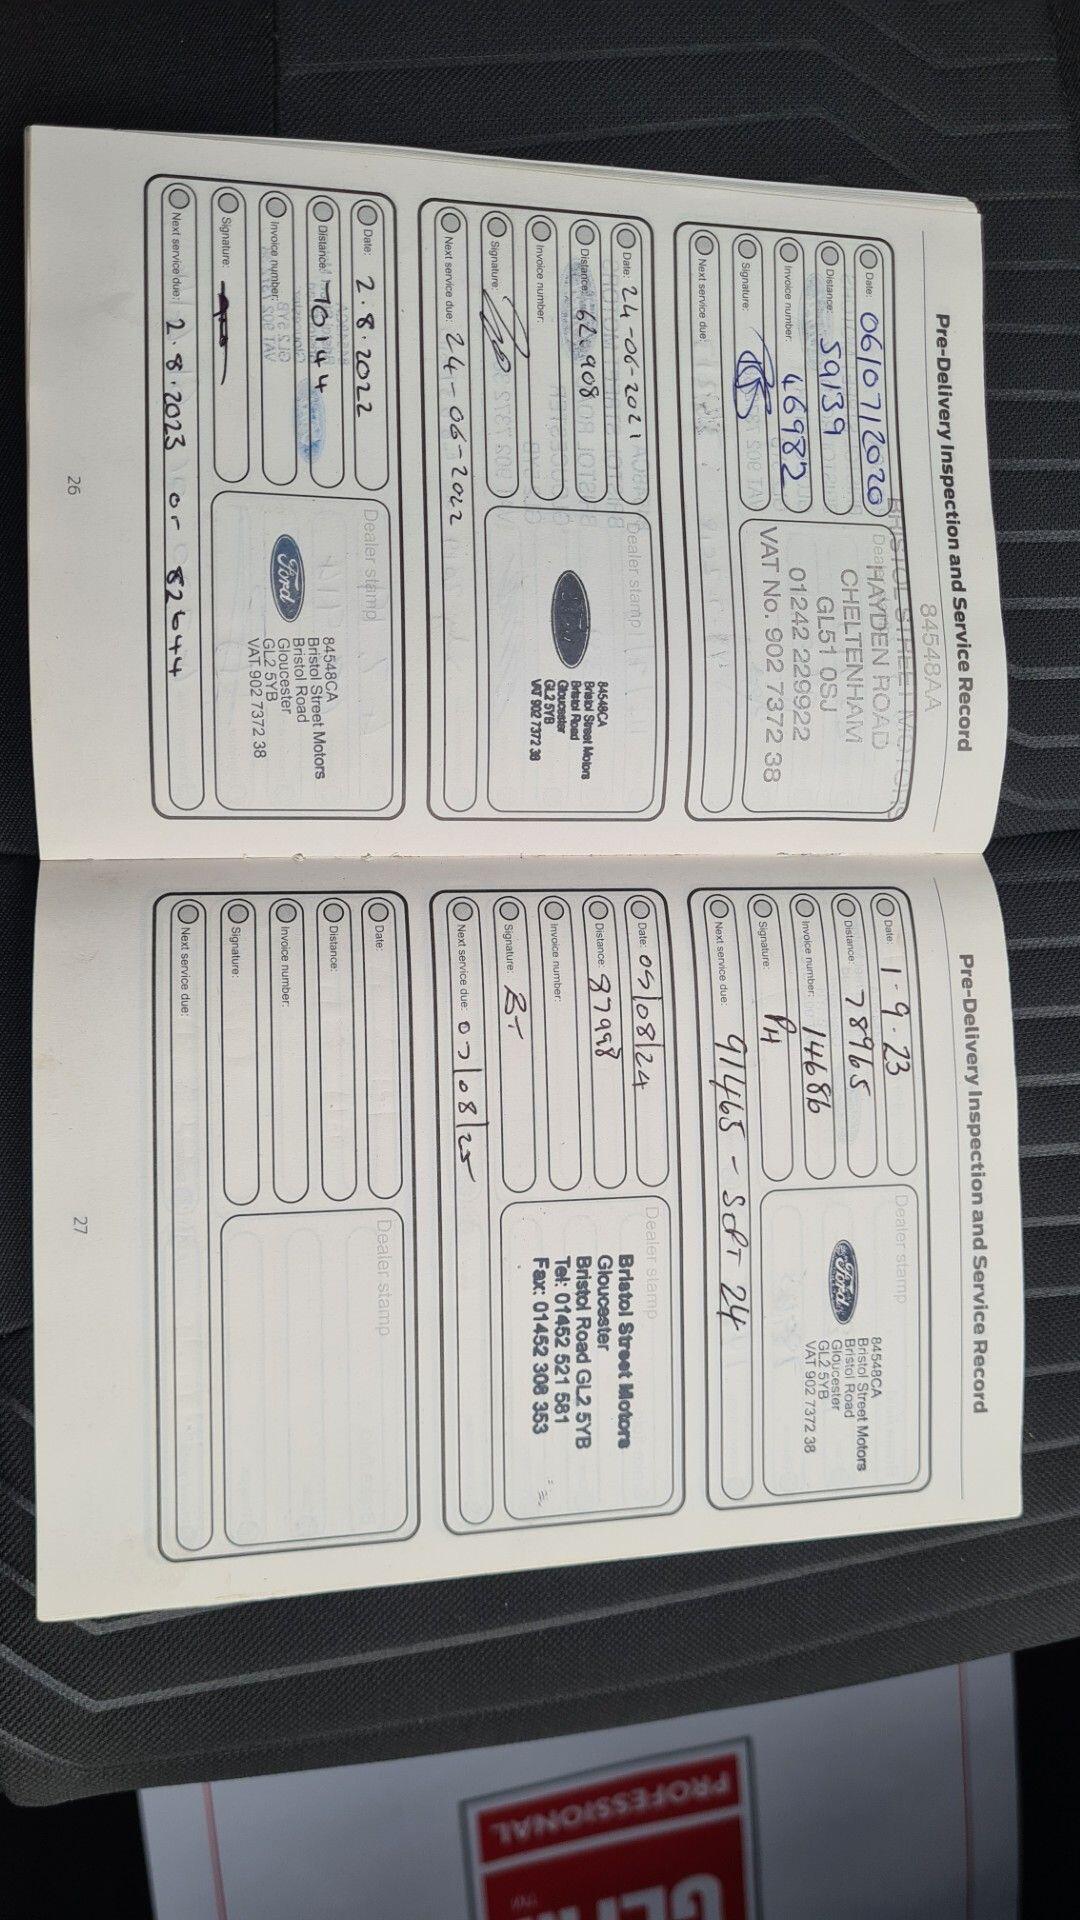 Pre-Delivery Inspection and Service Record
84548AA
BRISTOL STREET MOTORS
Date: 06/07/2020
Distance: 59139
Invoice number: 46982
Signature:
Next service due:
HAYDEN ROAD
CHELTENHAM
GL51 0SJ
01242 229922
VAT No. 902 7372 38
Date: 24-06-2021
Distance: 62908
Invoice number:
Signature:
Next service due: 24-06-2022
Dealer stamp
Ford
84548CA
Bristol Street Motors
Bristol Road
Gloucester
GL2 5YB
VAT 902 7372 38
Date: 2.8.2022
Distance: 70144
Invoice number:
Signature:
Next service due: 2.8.2023 or 82644
Dealer stamp
Ford
84548CA
Bristol Street Motors
Bristol Road
Gloucester
GL2 5YB
VAT 902 7372 38
26
Pre-Delivery Inspection and Service Record
Date: 1.9.23
Distance: 78965
Invoice number: 14686
Signature: PH
Next service due: 91465 - SEPT 24
Dealer stamp
Ford
84548CA
Bristol Street Motors
Bristol Road
Gloucester
GL2 5YB
VAT 902 7372 38
Date: 05/08/24
Distance: 87998
Invoice number:
Signature: BT
Next service due: 07/08/25
Dealer stamp
Bristol Street Motors
Gloucester
Bristol Road GL2 5YB
Tel: 01452 521 581
Fax: 01452 308 353
Date:
Distance:
Invoice number:
Signature:
Next service due:
Dealer stamp
27
PROFESSIONAL